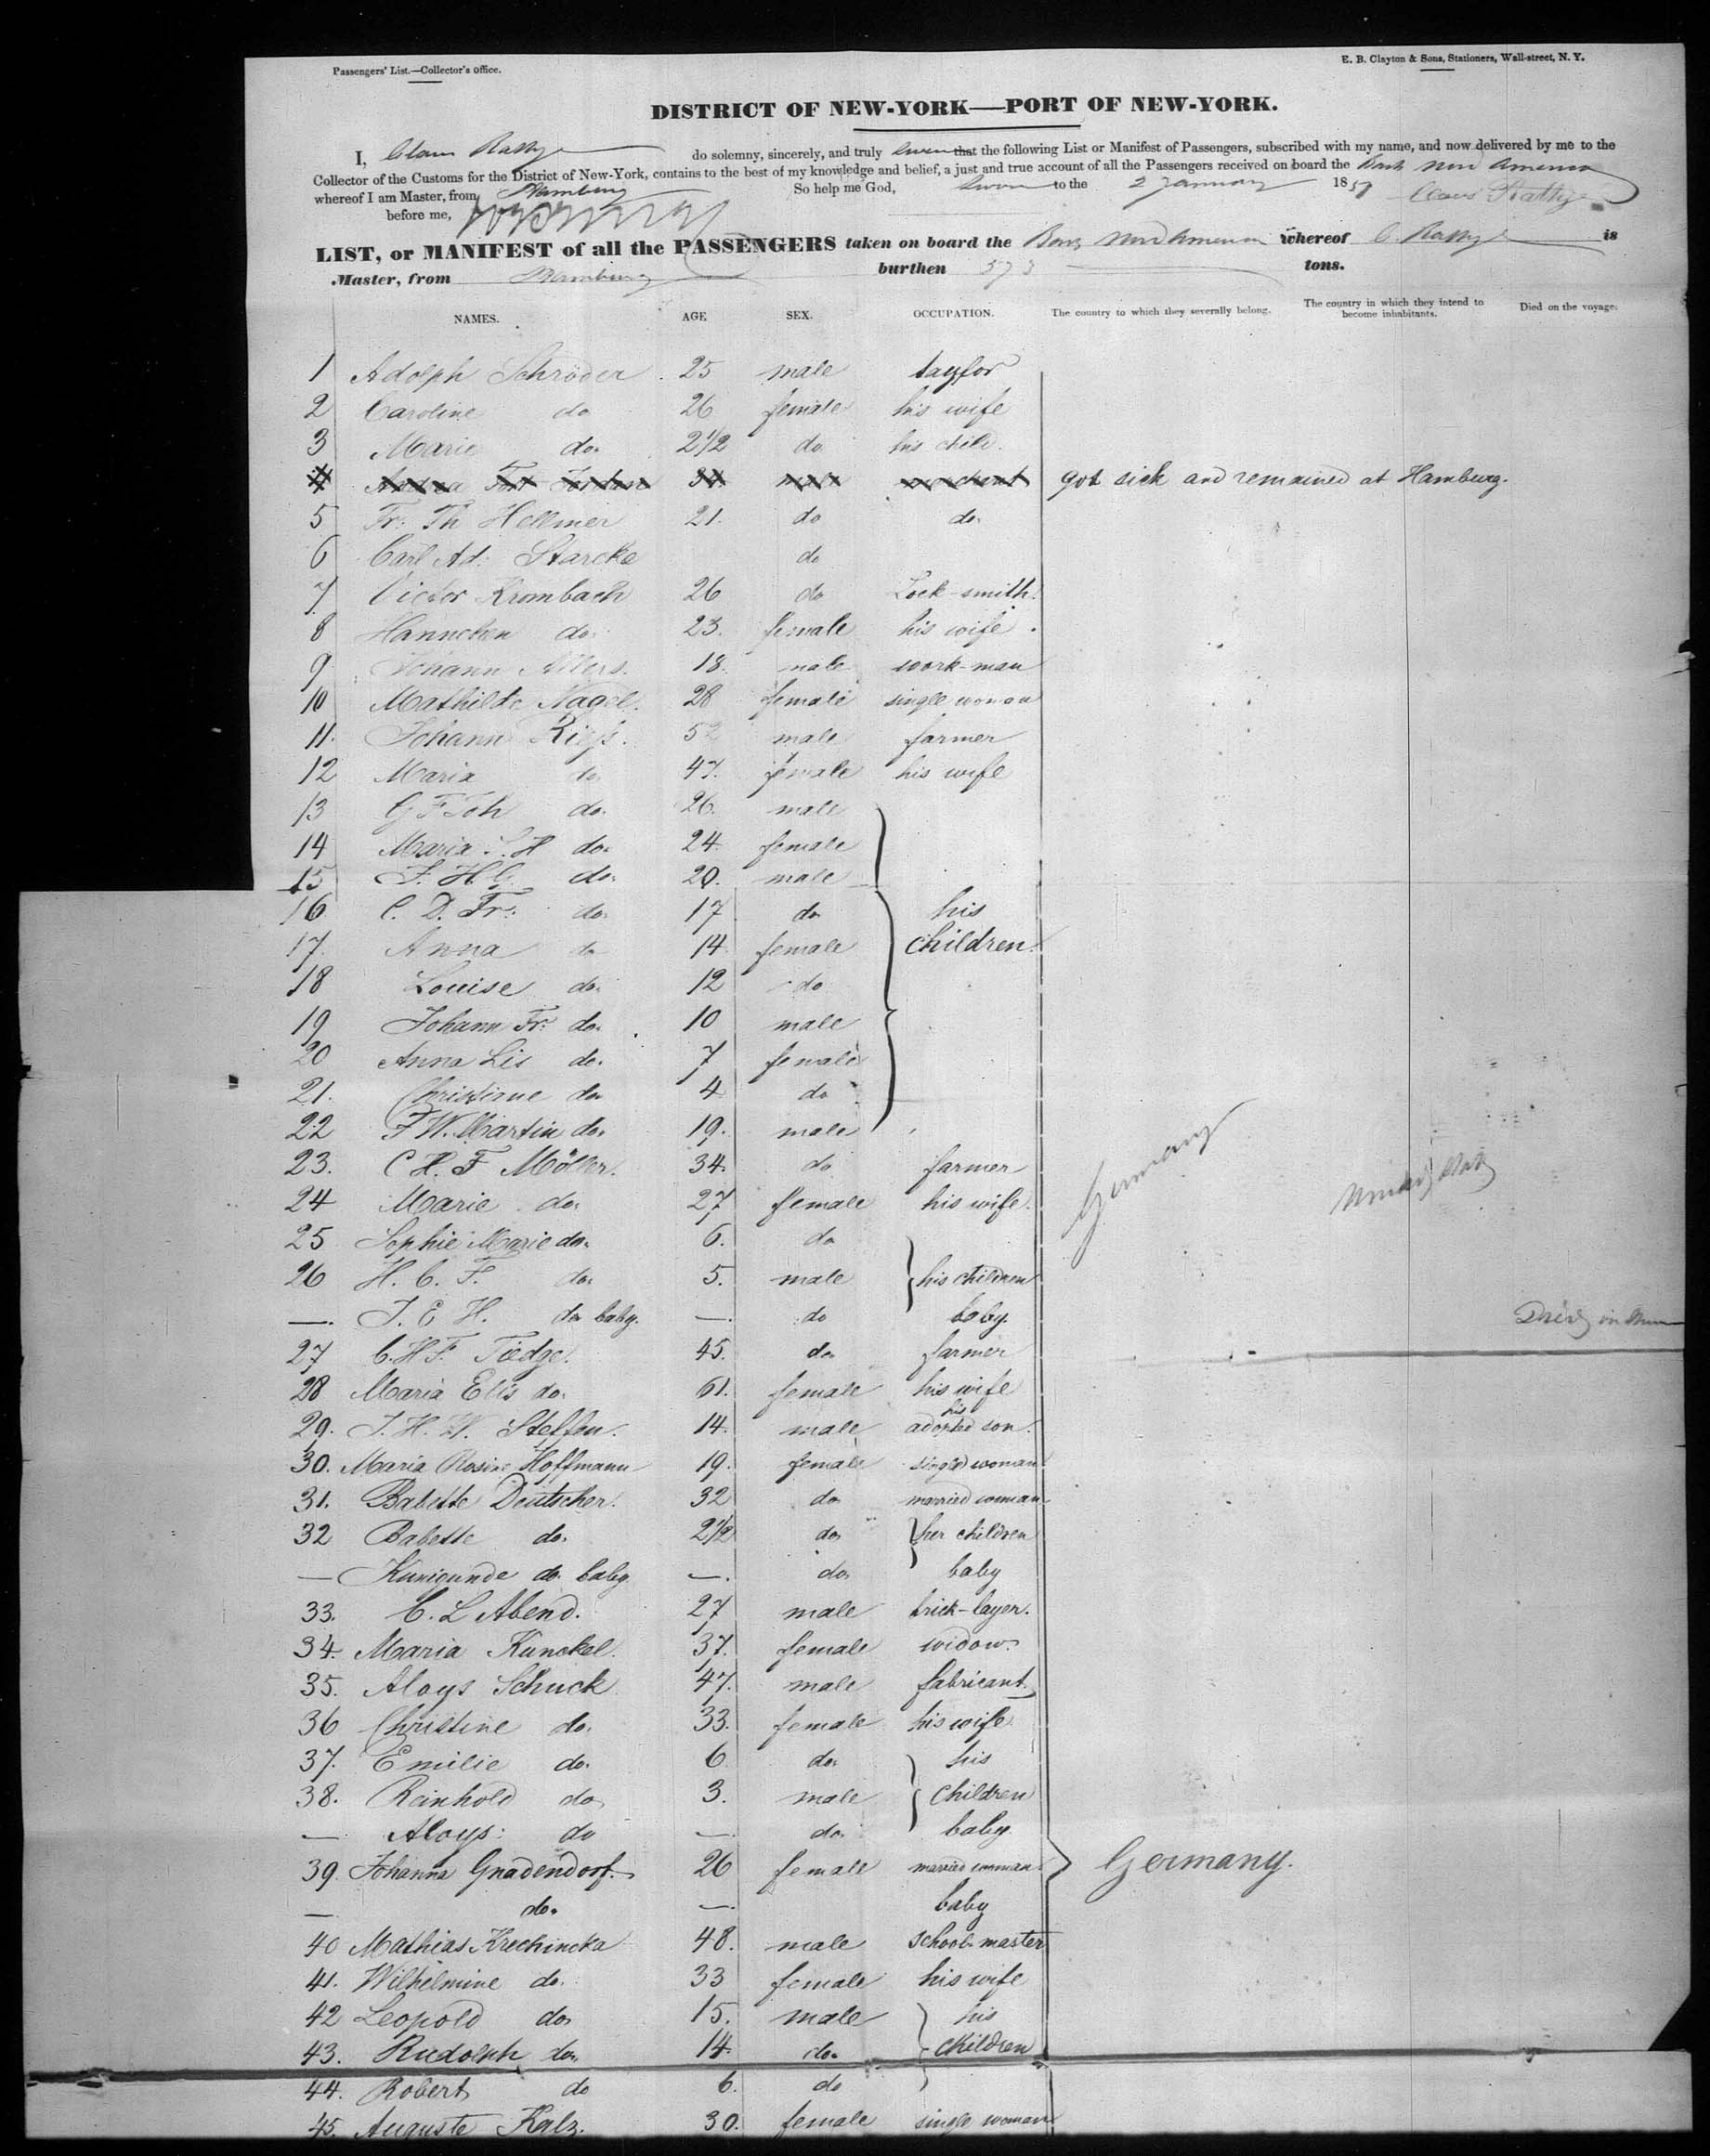 Passengers' List.—Collector's office.
E. B. Clayton & Sons, Stationers, Wall-street, N. Y.
DISTRICT OF NEW-YORK—PORT OF NEW-YORK.
I, do solemny, sincerely, and truly that the following List or Manifest of Passengers, subscribed with my name, and now delivered by me to the
Collector of the Customs for the District of New-York, contains to the best of my knowledge and belief, a just and true account of all the Passengers received on board the Bark
whereof I am Master, from Hamburg So help me God, to the 2 January 1857
before me,
LIST, or MANIFEST of all the PASSENGERS taken on board the Bark whereof is
Master, from Hamburg burthen 573 tons.
NAMES. AGE SEX. OCCUPATION. The country to which they severally belong. The country in which they intend to become inhabitants. Died on the voyage.
1 Adolph Schröder 25 male taylor
2 Caroline do 26 female his wife
3 Marie do. 2 1/2 do his child.
4 got sick and remained at Hamburg.
5 Fr. Th Hellmer 21. do do.
6 Carl Ad. Starcke do
7 Victor Krombach 26 do Lock-smith.
8 Hannchen do. 23. female his wife.
9 Johann 18. male work-man
10 Mathilde Nagel. 28 female single woman
11. Johann 52 male farmer
12 Maria do 47. female his wife
13 do. 26. male
14 Maria do. 24 female
15 do. 20. male
16 C. D. Fr. do. 17 do his
17. Anna do 14 female children.
18 Louise do. 12 do
19 Johann Fr. do. 10 male
20 Anna Lis do. 7 female
21. Christine do 4 do
22 F W. Martin do. 19. male
23. C H. F Möller. 34. do farmer
24 Marie do. 27 female his wife.
25 Sophie Marie do. 6. do
26 H. C. F. do. 5. male his children
—. J. E H. do baby. —. do baby.
27 C. H F. Tiedge. 45. do farmer
28 Maria Elis do. 61. female his wife
29. J. H. Steffen. 14. male his adopted son.
30. Maria Rosine Hoffmann 19. female single woman
31. Babette Deutscher. 32 do married woman
32 Babette do. 2 1/2 do her children
— Kunigunde do. baby —. do. baby
33. C. L Abend. 27 male brick-layer.
34. Maria Kunckel. 37. female widow.
35. Aloys Schuck 47. male fabricant.
36 Christine do. 33. female his wife.
37. Emilie do. 6 do. his
38. Reinhold do 3. male children
— Aloys. do —. do. baby.
39. Johanna Gnadendorf. 26 female married woman Germany.
— do. —. baby
40 Mathias Krechincka 48. male school-master
41. Wilhelmine do. 33 female his wife
42 Leopold do 15. male his
43. Rudolph do. 14. do. children
44. Robert do 6. do
45. Auguste Kalz. 30. female single woman
Germany